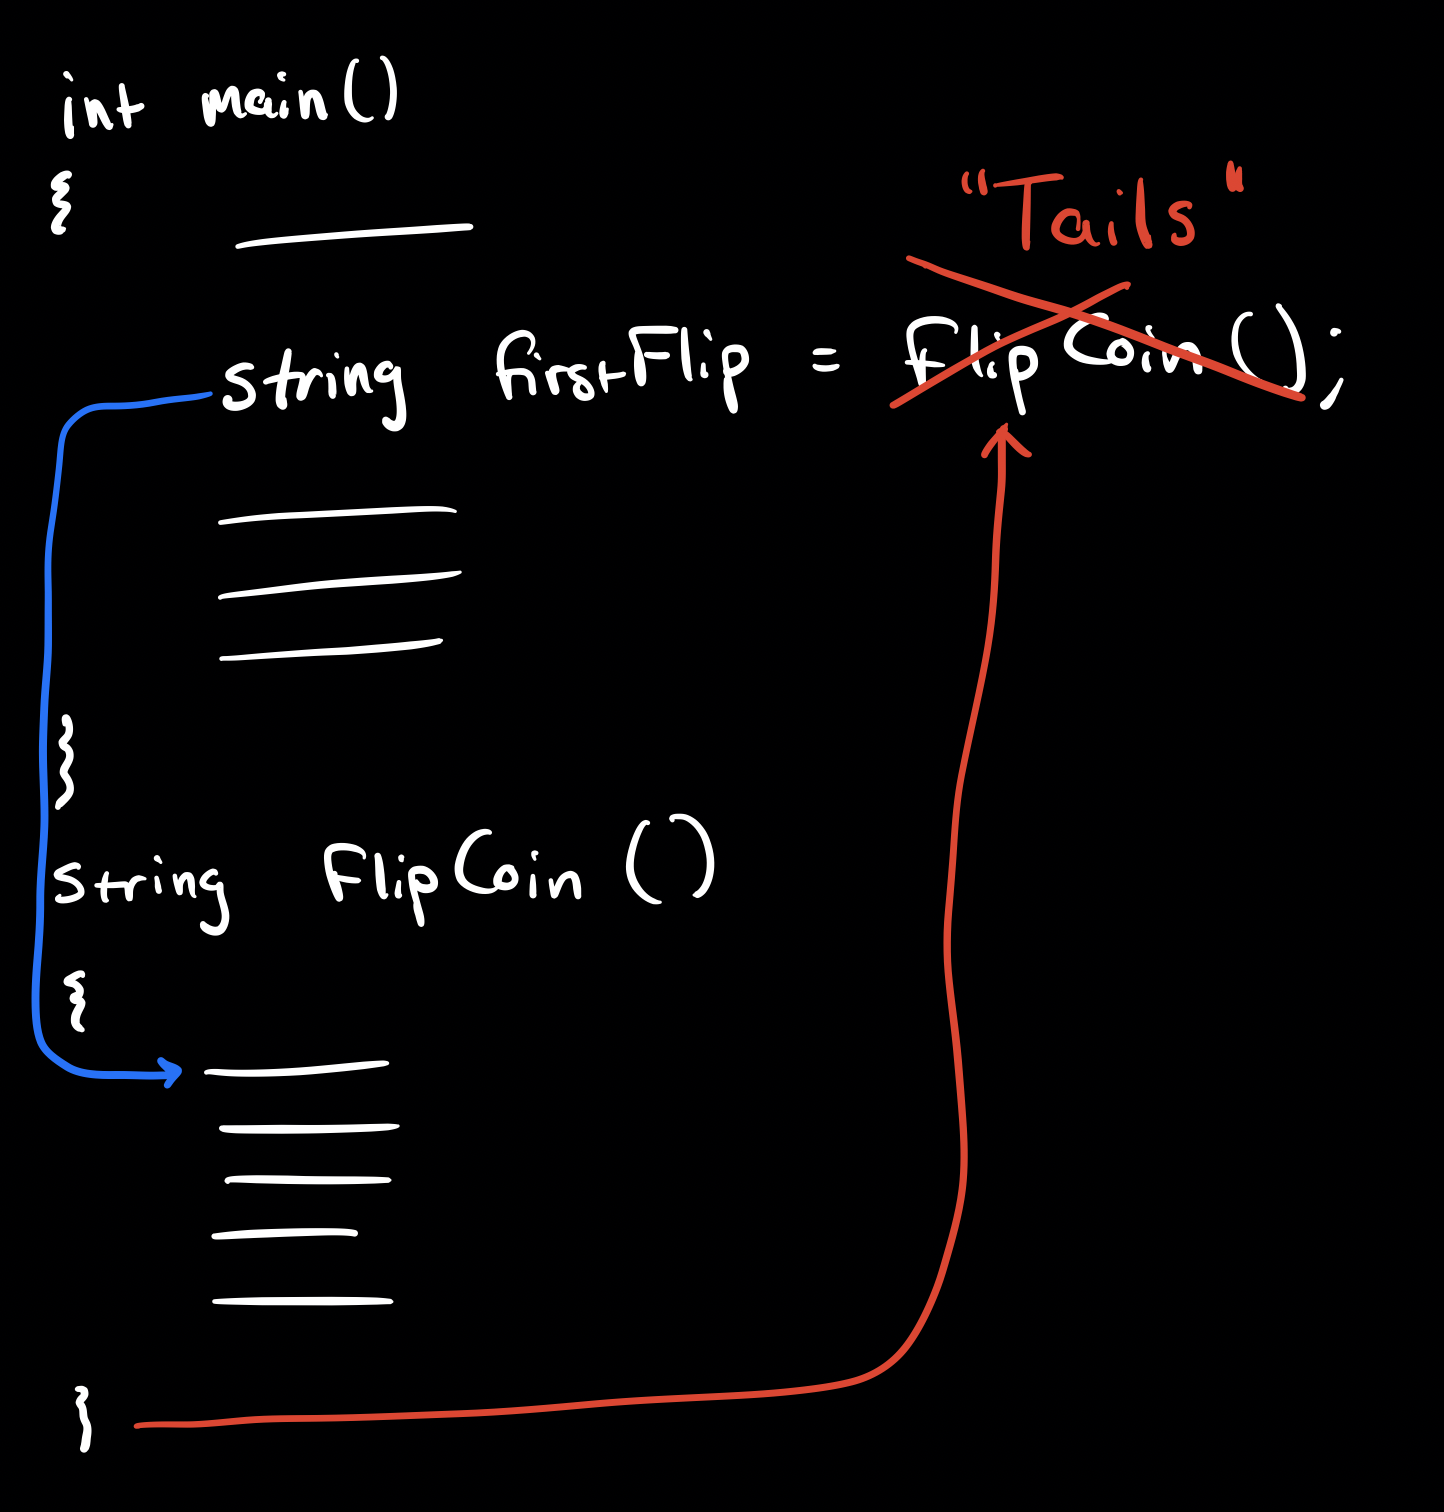 int main()
{
"Tails"
string firstFlip = FlipCoin();
}
string FlipCoin ()
{
}